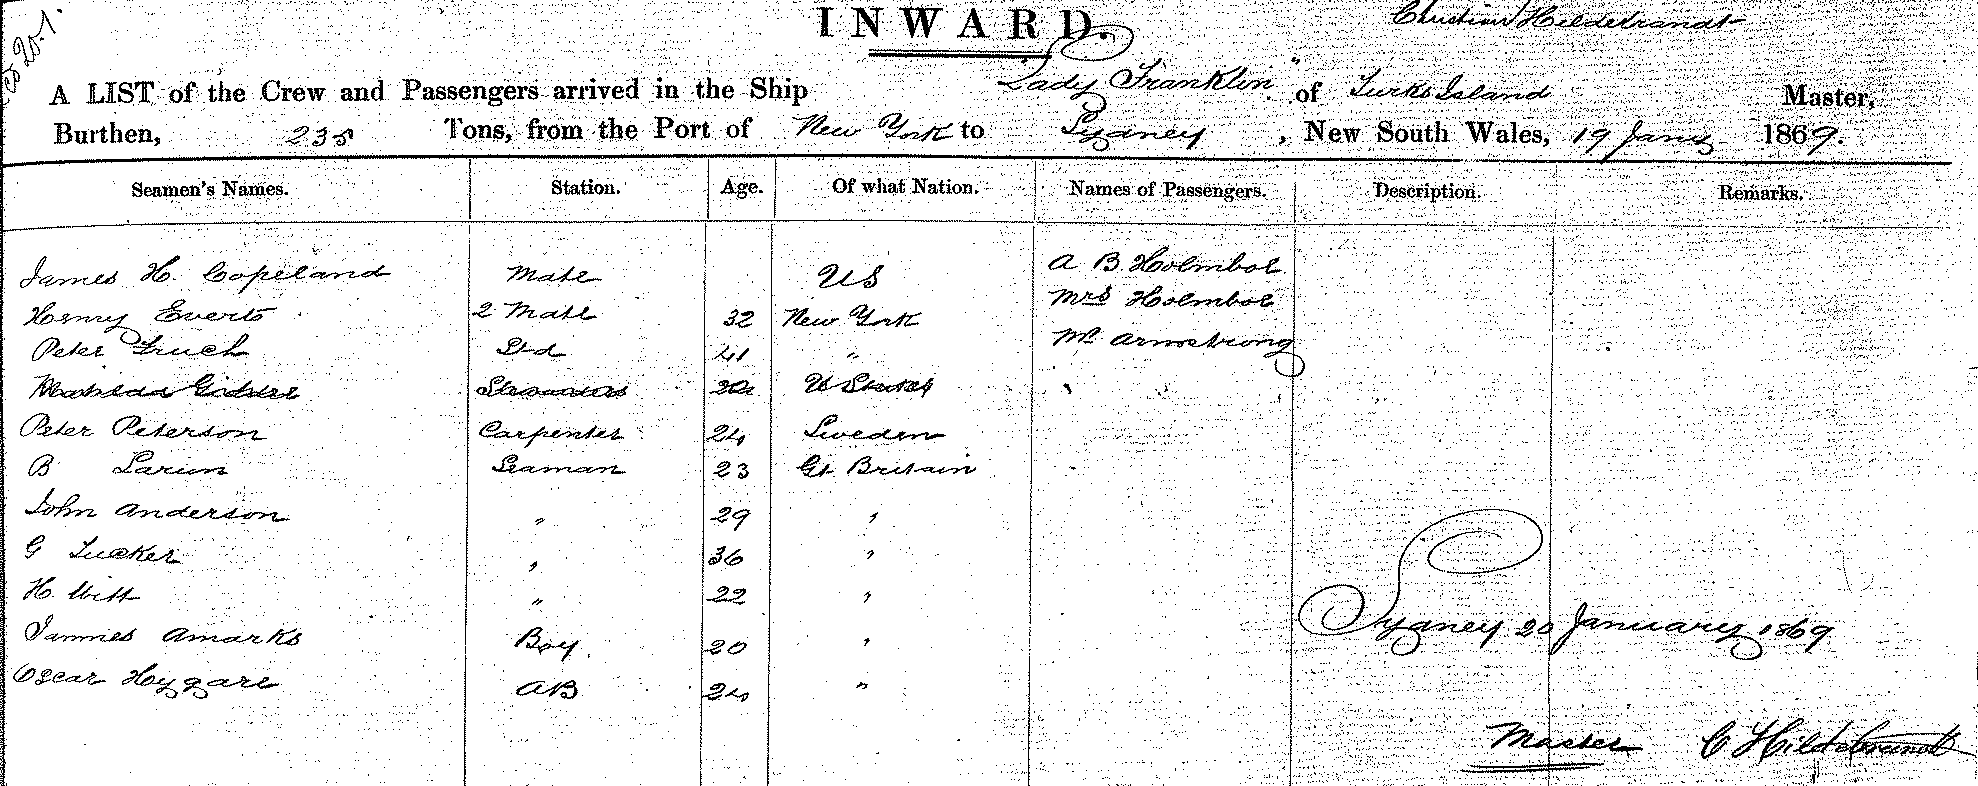 INWARD.
Christian Hildebrandt
20-1.
A LIST of the Crew and Passengers arrived in the Ship "Lady Franklin" of Turks Island Master,
Burthen, 235 Tons, from the Port of New York to Sydney, New South Wales, 19 Jany 1869.
Seamen's Names. Station. Age. Of what Nation. Names of Passengers. Description. Remarks.
James H. Copeland Mate US A B Holmboe
Henry Everts 2 Mate 32 New York Mrs Holmboe
Peter Gruch Std 41 " Mr Armstrong
Stewardess 20 U States
Peter Peterson Carpenter 24 Sweden
B Larun Seaman 23 Gt Britain
John Anderson " 29 "
G Tucker " 36 "
H. Witt " 22 "
Jammes Amarks Boy 20 "
Oscar Hygare AB 24 "
Sydney 20 January 1869
Master C Hildebrandt